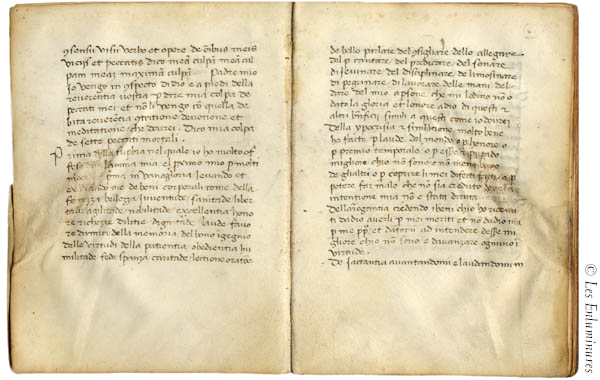 sensu visu verbo et opere de omnibus meis
viciis et peccatis Dico mea culpa mea cul
pa mea maxima culpa Padre mio
Io vengo in conspecto di dio e a piedi della
reverentia vostra
peccati mei et no li vengo co quella de
bita reverentia contritione devotione et
meditatione che dovrei. Dico mia colpa
de sette peccati mortali.
Prima della superbia nel quale io ho molto of
feso lanima mia el primo mio p molti
modi prima in vanagloria levando et
de beni corporali come della
forteza belleza juventude sanitade liber
tade agilitade nobilitade excellentia hono
re richeze dilitie dignitade laude favo
re de amici della memoria, del bono igegnio
delle virtudi della patientia obedientia hu
militade fede speranza caritade lectione oratione
de bello parlare del consigliare dello allegrare
del cantare del predicare del sonare
di del disciplinare de limosinare
di pegrinare del lavorare delle mani del
dare del mio a psone che mi lodino no o
dato la gloria et lonore a dio di questi et
altri beneficii simili a questi come io dovrei
Della ypocrisia et simulatione molto bene
ho facto p laude del mondo o p honore o
p premio temporale o p essere
migliore chio no sono o no meno bono
de glialtri o p coprire li mei difecti o p
potere far male che no sia creduto
intentione mia no e stata dritta
Dellarrogantia credendo beni chio ho ricevu
ti da dio averli p mei meriti et no da dio ma
p me pprio et datomi ad intendere desse mi
gliore chio no sono e avanzare ognuno i
virtude.
De iactantia avantandomi e laudandomi in
© Les Enluminures